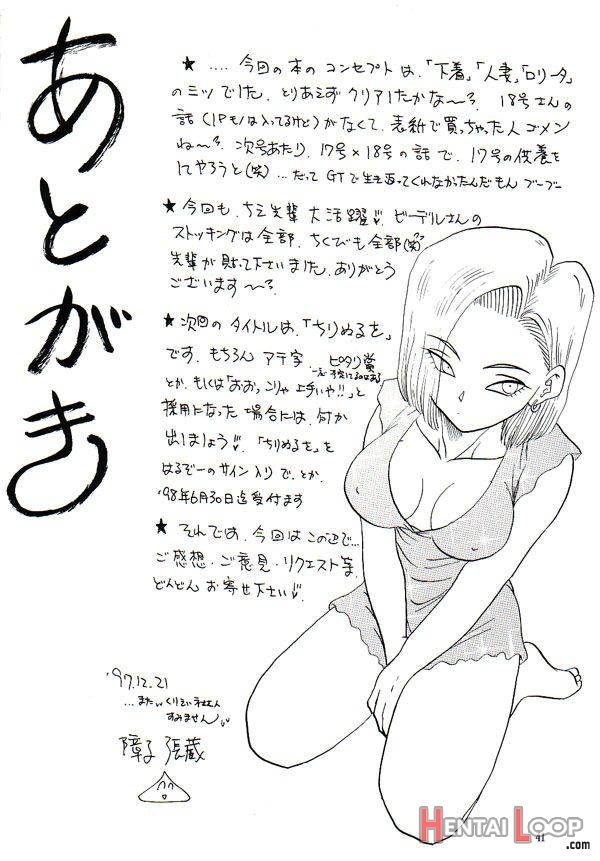 あとがき
★ .... 今回の本のコンセプトは、「下着」「人妻」「ロリータ」
のミツでした。とりあえずクリアしたかな〜?。18号さんの
話(1Pモノは入ってるけど)がなくて、表紙で買っちゃった人ゴメン
ね〜?。次号あたり、17号×18号の話で、17号の供養を
してやろうと(笑)...だってGTで生き返ってくれなかったんだもんブーブー
★ 今回も、ちえ先輩 大活躍。ビーデルさんの
ストッキングは全部、ちくびも全部(笑)
先輩が貼って下さいました、ありがとう
ございます〜?
★ 次回のタイトルは、「ちりぬるを」
です。もちろん アテ字 ピタリ賞
とか、もしくは「おおっこりゃ上手いや!!」と
採用になった場合には、何か
出しましょう。「ちりぬるを」を
はるぞーのサイン入りで、とか。
'98年6月30日迄受付ます
★ それでは、今回はこの辺で...
ご感想・ご意見・リクエスト等、
どんどんお寄せ下さい
'97.12.21
...また
すみません
障子 張蔵
HENTAI LOOP
.com
41